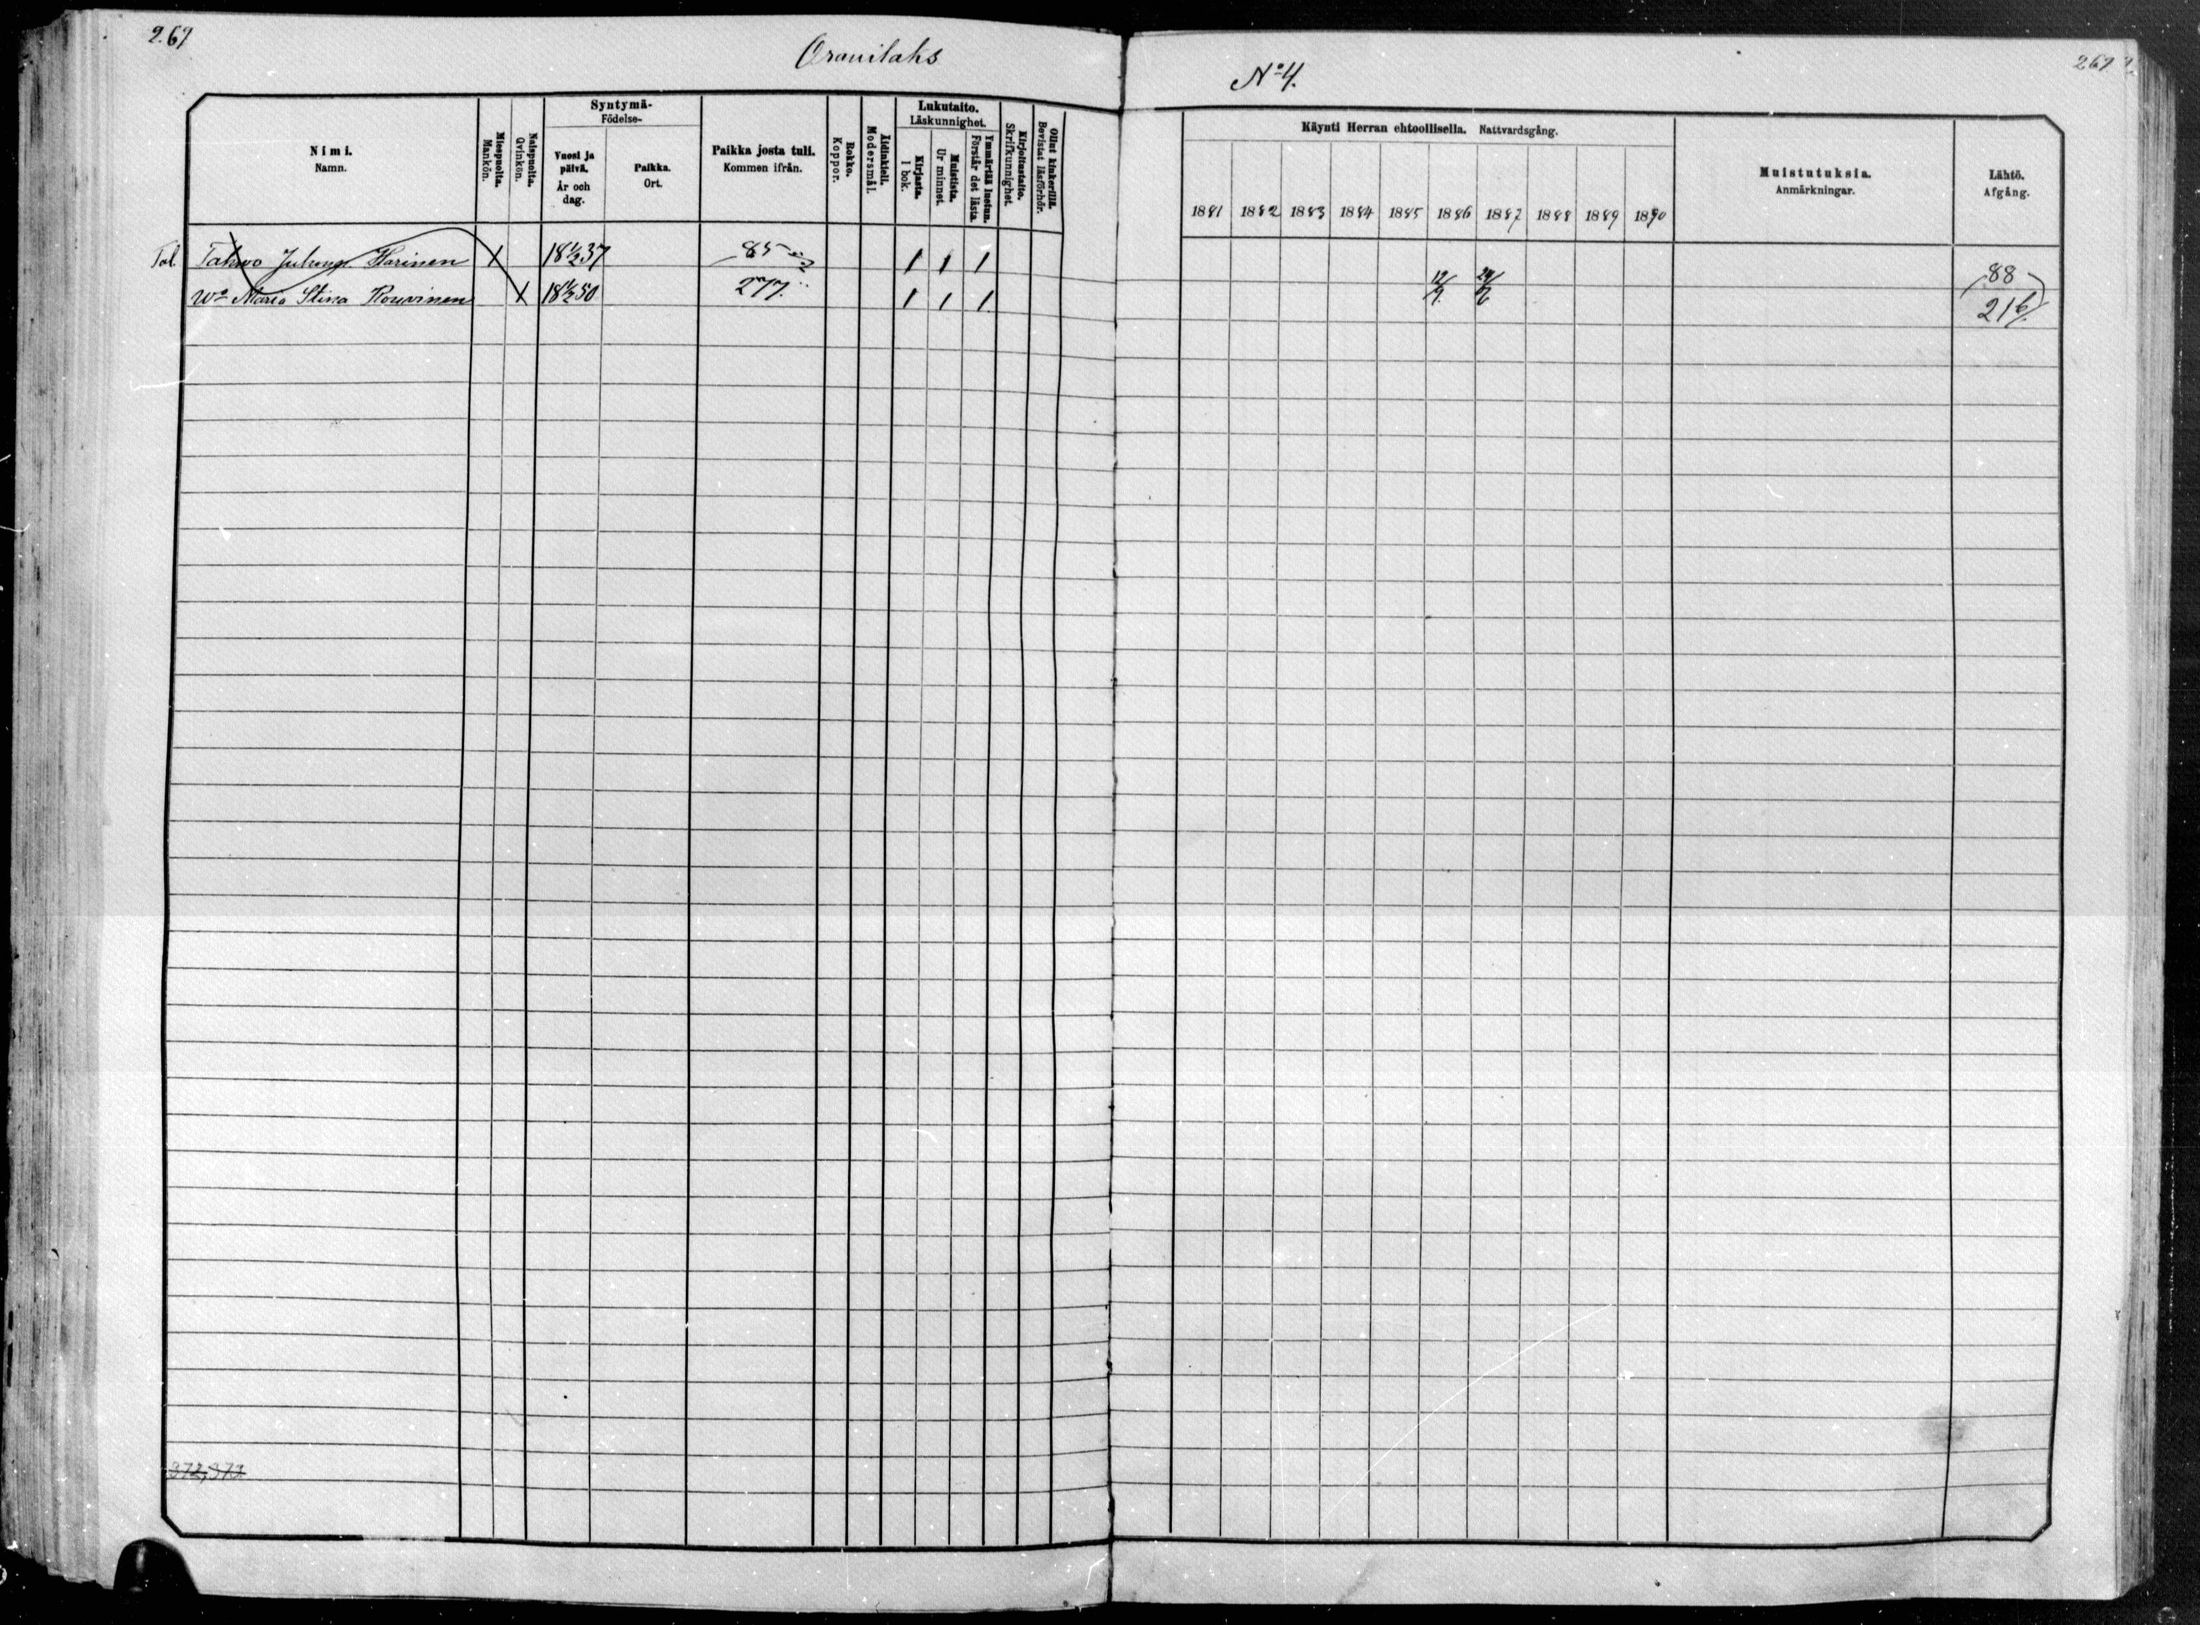 267
Oravilaks
Nimi.
Namn.
Miespuolta.
Mankön.
Naispuolta.
Qvinkön.
Syntymä-
Födelse-
Vuosi ja
päivä.
År och
dag.
Paikka.
Ort.
Paikka josta tuli.
Kommen ifrån.
Rokko.
Koppor.
Äidinkieli.
Modersmål.
Lukutaito.
Läskunnighet.
Kirjasta.
I bok.
Muistista.
Ur minnet.
Ymmärtää luetun.
Förstår det lästa.
Kirjoitustaito.
Skrifkunnighet.
Ollut kinkerillä.
Bevistat läsförhör.
Tal. Tahwo Juhonp. Karinen X 18 1/2 37 85 1 1 1
Wo Maria Stina Rouvinen X 18 1/2 50 277. 1 1 1
372, 373
No 4.
267
Käynti Herran ehtoollisella. Nattvardsgång.
1881 1882 1883 1884 1885 1886 1887 1888 1889 1890
Muistutuksia.
Anmärkningar.
Lähtö.
Afgång.
12/9. 24/6
(88)
216.